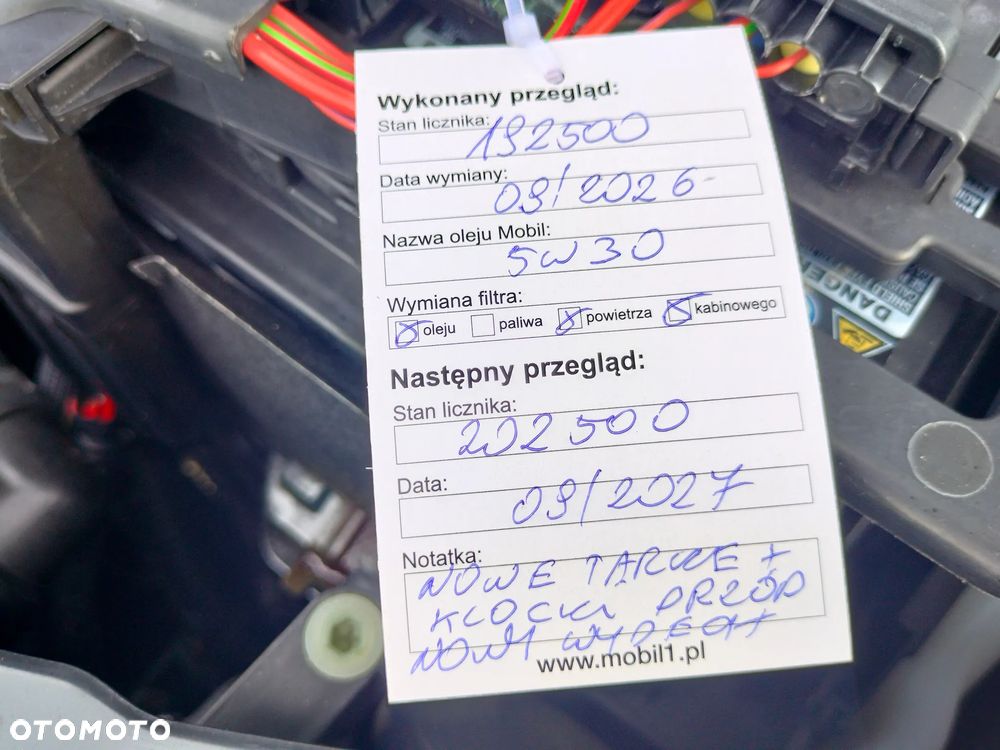 Wykonany przegląd:
Stan licznika:
192500
Data wymiany:
09/2026
Nazwa oleju Mobil:
5W30
Wymiana filtra:
oleju paliwa powietrza kabinowego
Następny przegląd:
Stan licznika:
202500
Data:
09/2027
Notatka:
NOWE TARCZE +
KLOCKI PRZÓD
NOWY WYDECH
www.mobil1.pl
DANGER
OTOMOTO